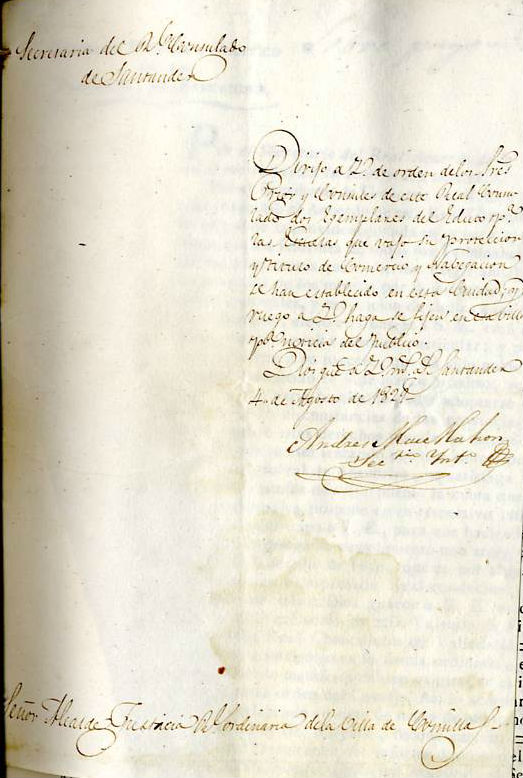 Secretaria del Rl. Consulado
de Santander
Dirijo a V. de orden de los Sres
Prior y Consules de este Real Consu
lado dos Exemplares del Edicto pa.
las Escuelas que vajo su proteccion
y titulo de Comercio y Navegacion
se han establecido en esta Ciudad; y
ruego a V. haga se fijen en esa Villa
pa. noticia del Publico.
Dios gue. a V. ms. as. Santander
4 de Agosto de 1829
Andres Mac Mahon
Secrio. Ynto.
Señor Alcalde Justicia Rl. ordinaria de la Villa de Comillas